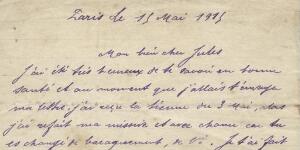 Paris le 15 Mai 1915
Mon bien cher Jules
J'ai été très heureux de te savoir en bonne
santé et au moment que j'allais t'envoyé
ma lettre j'ai reçue la tienne du 3 Mai, alors
j'ai refait ma missive et avec chance car tu
es changé de baraquement, de Je t'ai fait